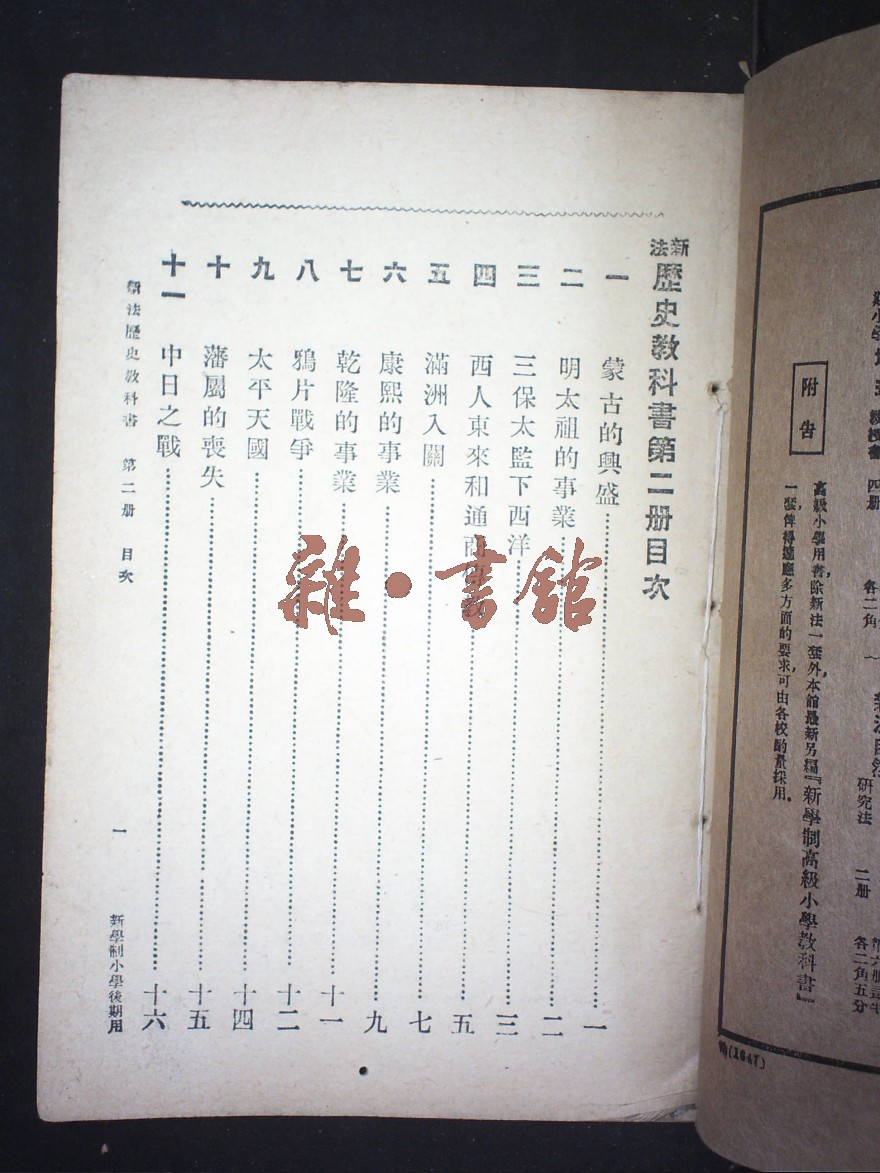 新法歷史教科書第二册目次
一 蒙古的興盛 一
二 明太祖的事業 二
三 三保太監下西洋 三
四 西人東來和通商 五
五 滿洲入關 七
六 康熙的事業 九
七 乾隆的事業 十一
八 鴉片戰爭 十二
九 太平天國 十四
十 藩屬的喪失 十五
十一 中日之戰 十六
新法歷史教科書 第二册 目次
一
新學制小學後期用
雜·書館
四册
各二角
研究法 二册
各二角五分
附告
高級小學用書除新法一套外,本館最新另編『新學制高級小學教科書』
一套,俾得適應多方面的要求,可由各校酌量採用。
(1647)